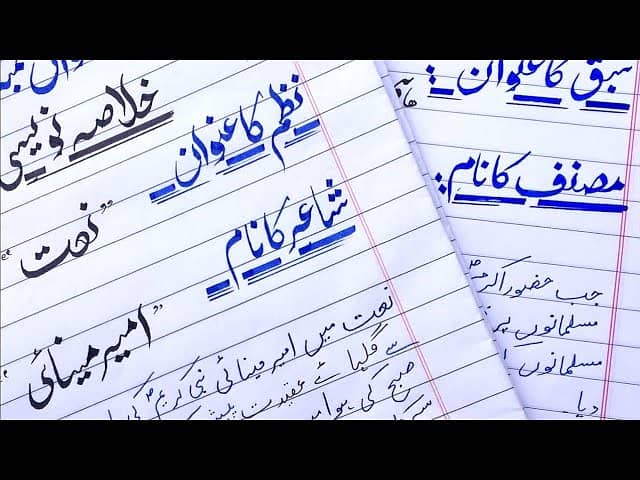 خلاصہ نویسی
نظم کا عنوان
"نعت"
شاعر کا نام
"امیر مینائی"
نعت میں امیر مینائی نبی کریمؐ کی
سے گلہائے عقیدت پیش
صبح کی ہوا میں
سبق کا عنوان :
مصنف کا نام :
جب حضور اکرمؐ
مسلمانوں پر
مسلمانوں
دیا۔